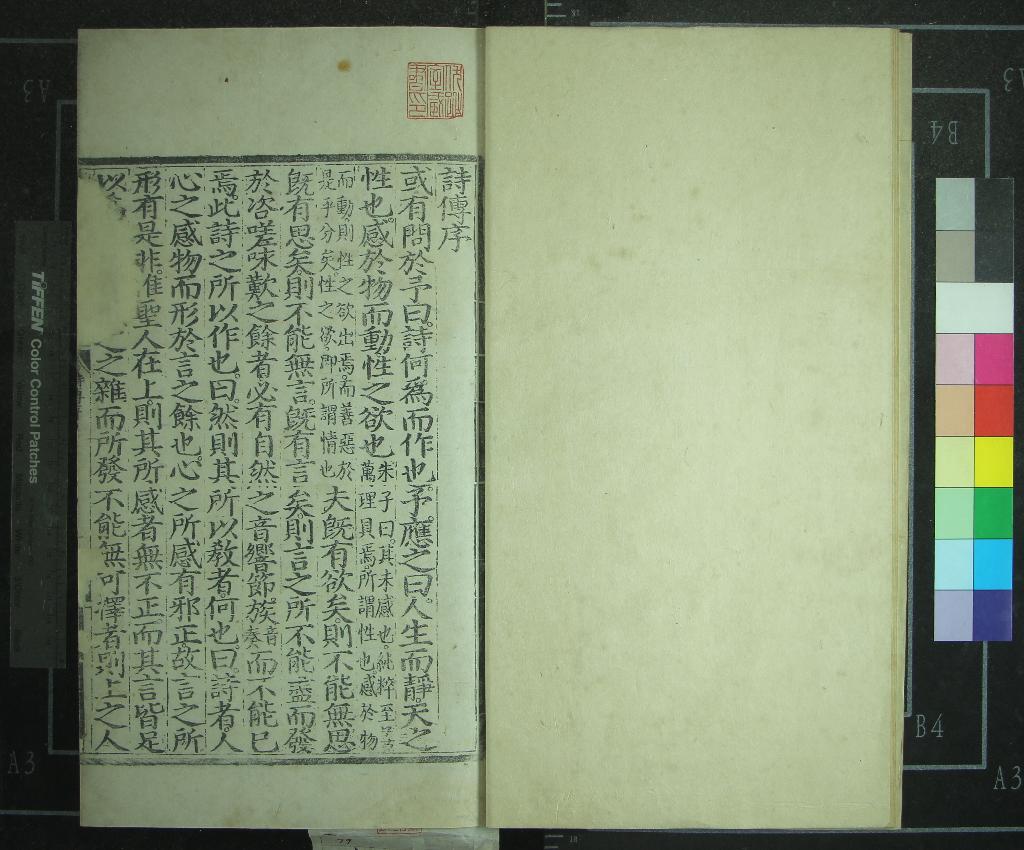 詩傳序
或有問於予曰。詩何為而作也。予應之曰。人生而靜。天之
性也。感於物而動。性之欲也朱子曰。其未感也。純粹至善萬理具焉。所謂性也感於物
而動。則性之欲出焉。而善惡於是乎分矣。性之欲。即所謂情也夫旣有欲矣。則不能無思
旣有思矣。則不能無言。旣有言矣。則言之所不能盡而發
於咨嗟咏歎之餘者。必有自然之音響節族。音奏而不能已
焉。此詩之所以作也。曰。然則其所以敎者何也。曰。詩者。人
心之感物而形於言之餘也。心之所感有邪正。故言之所
形有是非。惟聖人在上。則其所感者無不正。而其言皆足
以 之雜。而所發不能無可擇者。則上之人
TIFFEN Color Control Patches
A3
B4
A3
B4
A3
A3